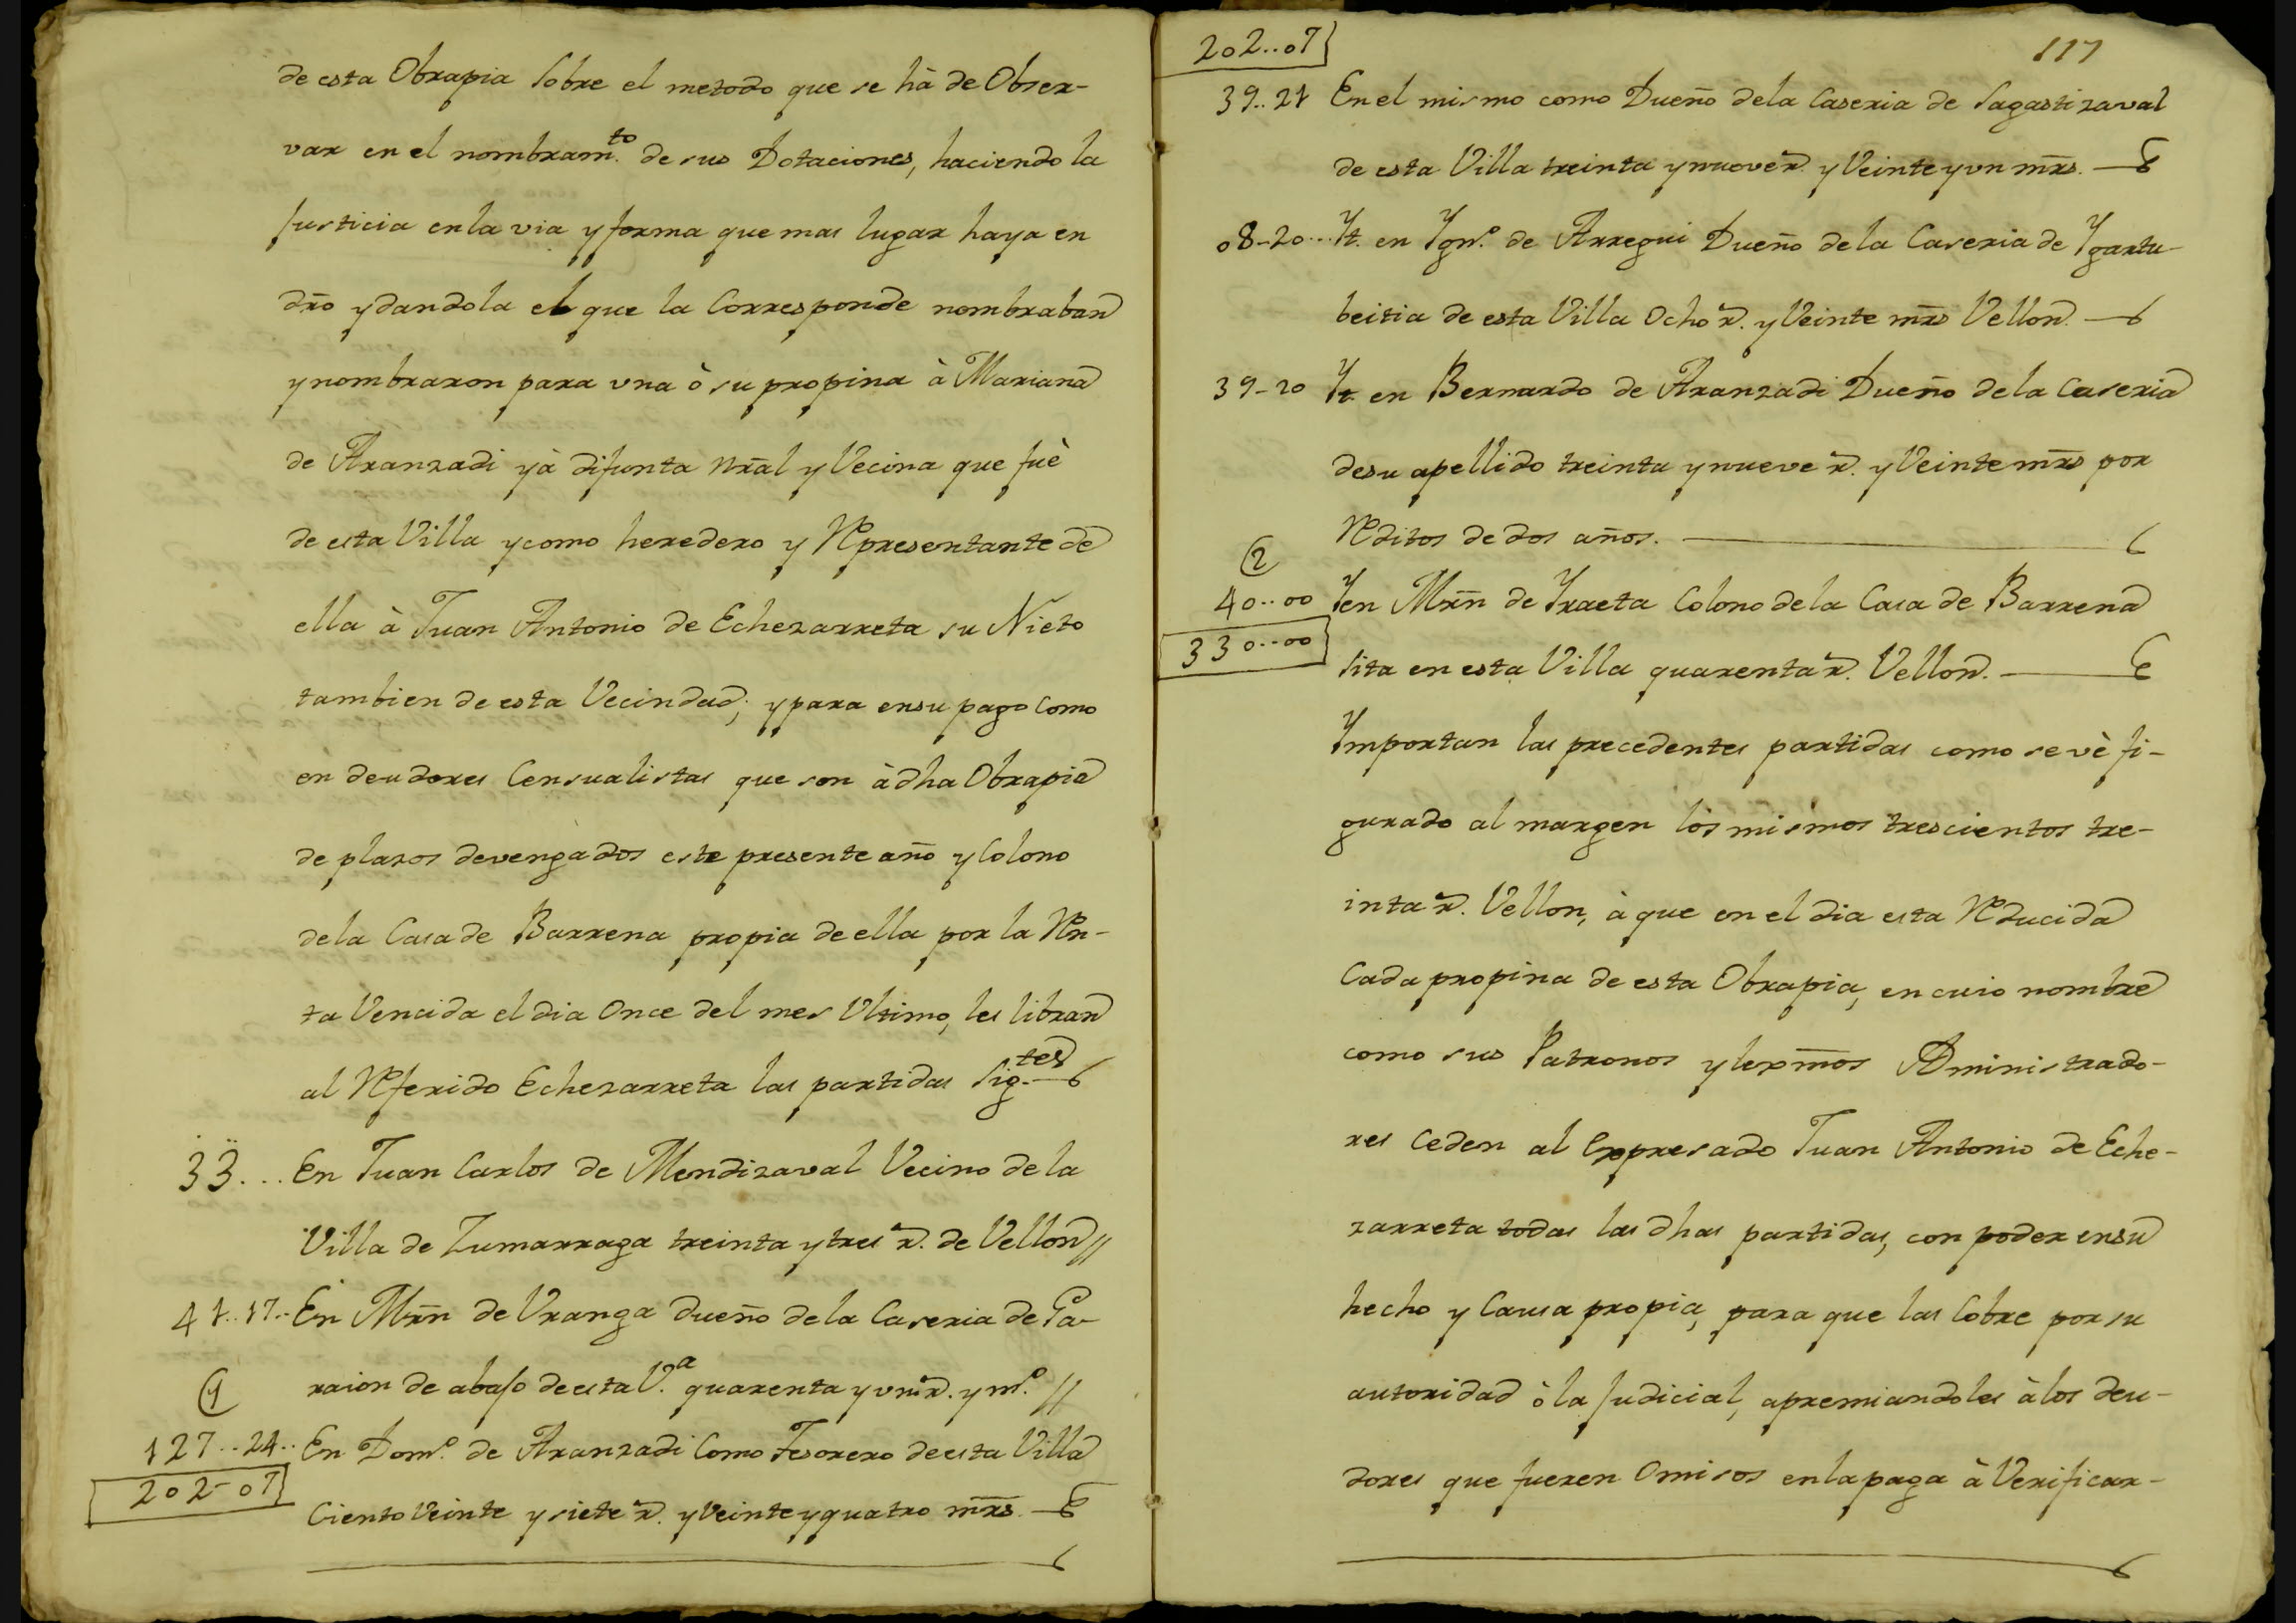 de esta Obrapia sobre el metodo que se hà de Obser-
var en el nombram.to de sus Dotaciones, haciendo la
Justicia en la via y forma que mas lugar haya en
dr̃o y dandola el que la Corresponde nombraban
y nombraron para vna ò su propina à Mariana
de Aranzadi yà difunta nr̃al y Vecina que fuè
de esta Villa y como heredero y Representante de
ella à Juan Antonio de Echezarreta su Nieto
tambien de esta Vecindad; y para en su pago como
en deudores Censualistas que son à dha Obrapia
de plazos devengados este presente año y Colono
de la Casa de Barrena propia de ella por la Ren-
ta Vencida el dia Once del mes Vltimo, les libran
al Referido Echezarreta las partidas Sig.tes
33... En Juan Carlos de Mendizaval Vecino de la
Villa de Zumarraga treinta y tres r.s de Vellon //
41..17.. En Mrñ de Vranga dueño de la Caseria de Pa-
raion de abajo de esta V.a quarenta y vn r.s y m.o //
1
127..24.. En Dom.o de Aranzadi Como Tesorero de esta Villa
202-07
Ciento Veinte y siete r.s y Veinte y quatro mr̃s
202..07
117
39..21 En el mismo como Dueño de la Caseria de Sagastizaval
de esta Villa treinta y nueve r.s y Veinte y vn mr̃s.
08-20... Yt. en Ygn.o de Arregui Dueño de la Caseria de Ygartu-
beitia de esta Villa Ocho r.s y Veinte mr̃s Vellon.
39-20 Yt. en Bernardo de Aranzadi Dueño de la Caseria
de su apellido treinta y nueve r.s y Veinte mr̃s por
Reditos de dos años.
2
40..00 Y en Mrñ de Yraeta Colono de la Casa de Barrena
330..00
sita en esta Villa quarenta r.s Vellon.
Ymportan las precedentes partidas como se vè fi-
gurado al margen los mismos trescientos tre-
inta r.s Vellon, à que en el dia esta Reducida
Cada propina de esta Obrapia, en cuio nombre
como sus Patronos y lexm̃os Administrado-
res Ceden al Expresado Juan Antonio de Eche-
zarreta todas las dhas partidas, con poder en su
hecho y Causa propia, para que las Cobre por su
autoridad ò la Judicial, apremiandoles à los deu-
dores que fueren Omisos en la paga à Verificar-